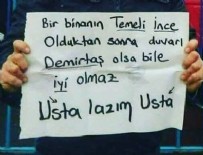 Bir binanın Temeli İnce
Olduktan sonra duvarı
Demirtaş olsa bile
iyi olmaz
Usta lazım Usta